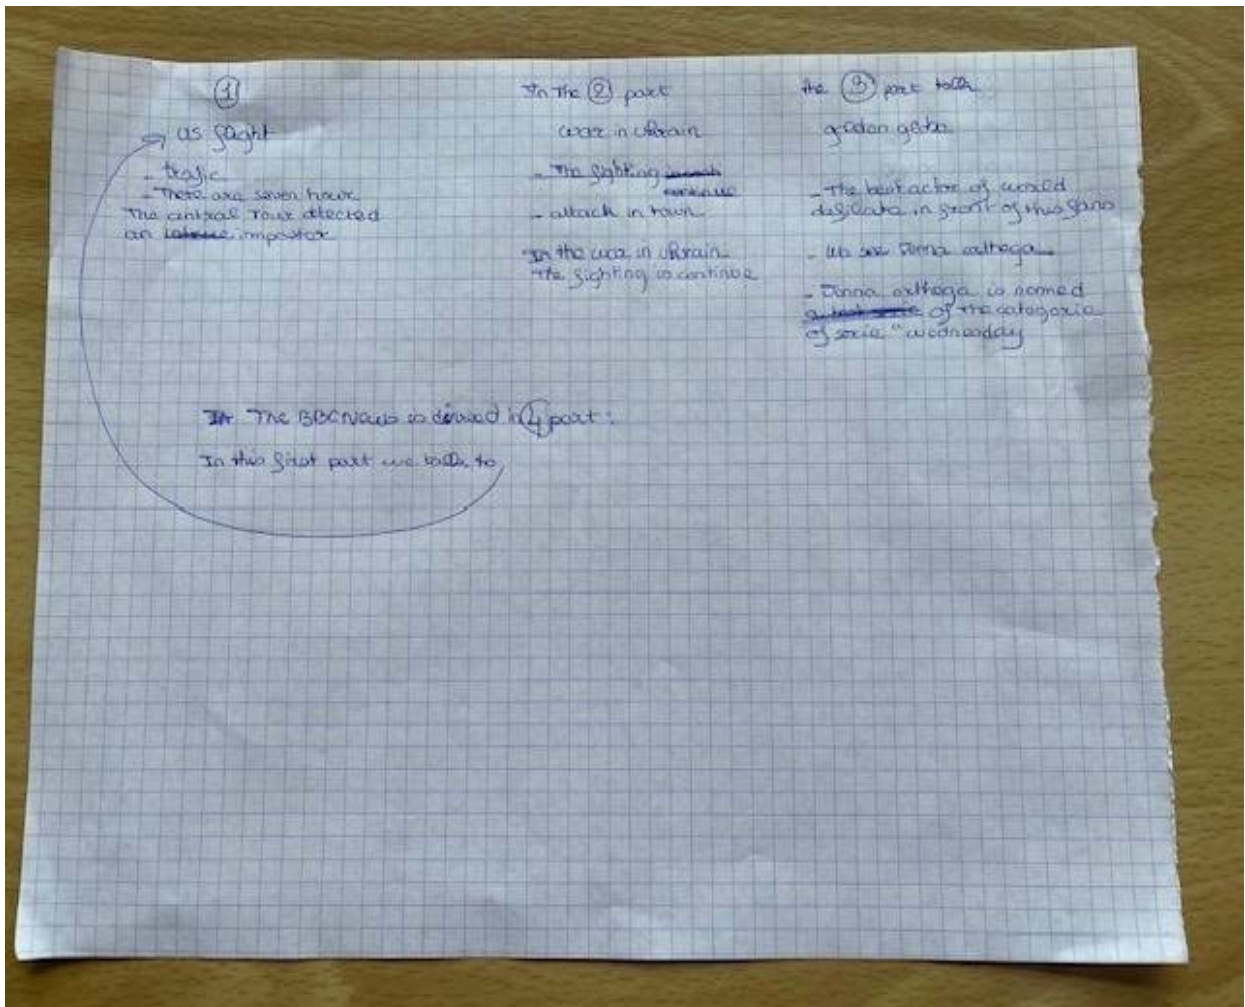 ①
us flight
- trafic
- There are seven hour
The central Tour dtected
an impostor
In the ② part
war in ukrain
- The fighting
continue
- attack in town
In the war in ukrain
the fighting is continue
the ③ part talk
golden globe
- The best actor of world
defilate in front of this fans
- We see Jenna orthega
- Jenna orthega is nomed
of the categorie
of serie "wednesday
The BBC News is divised in ④ part :
In this first part we talk to